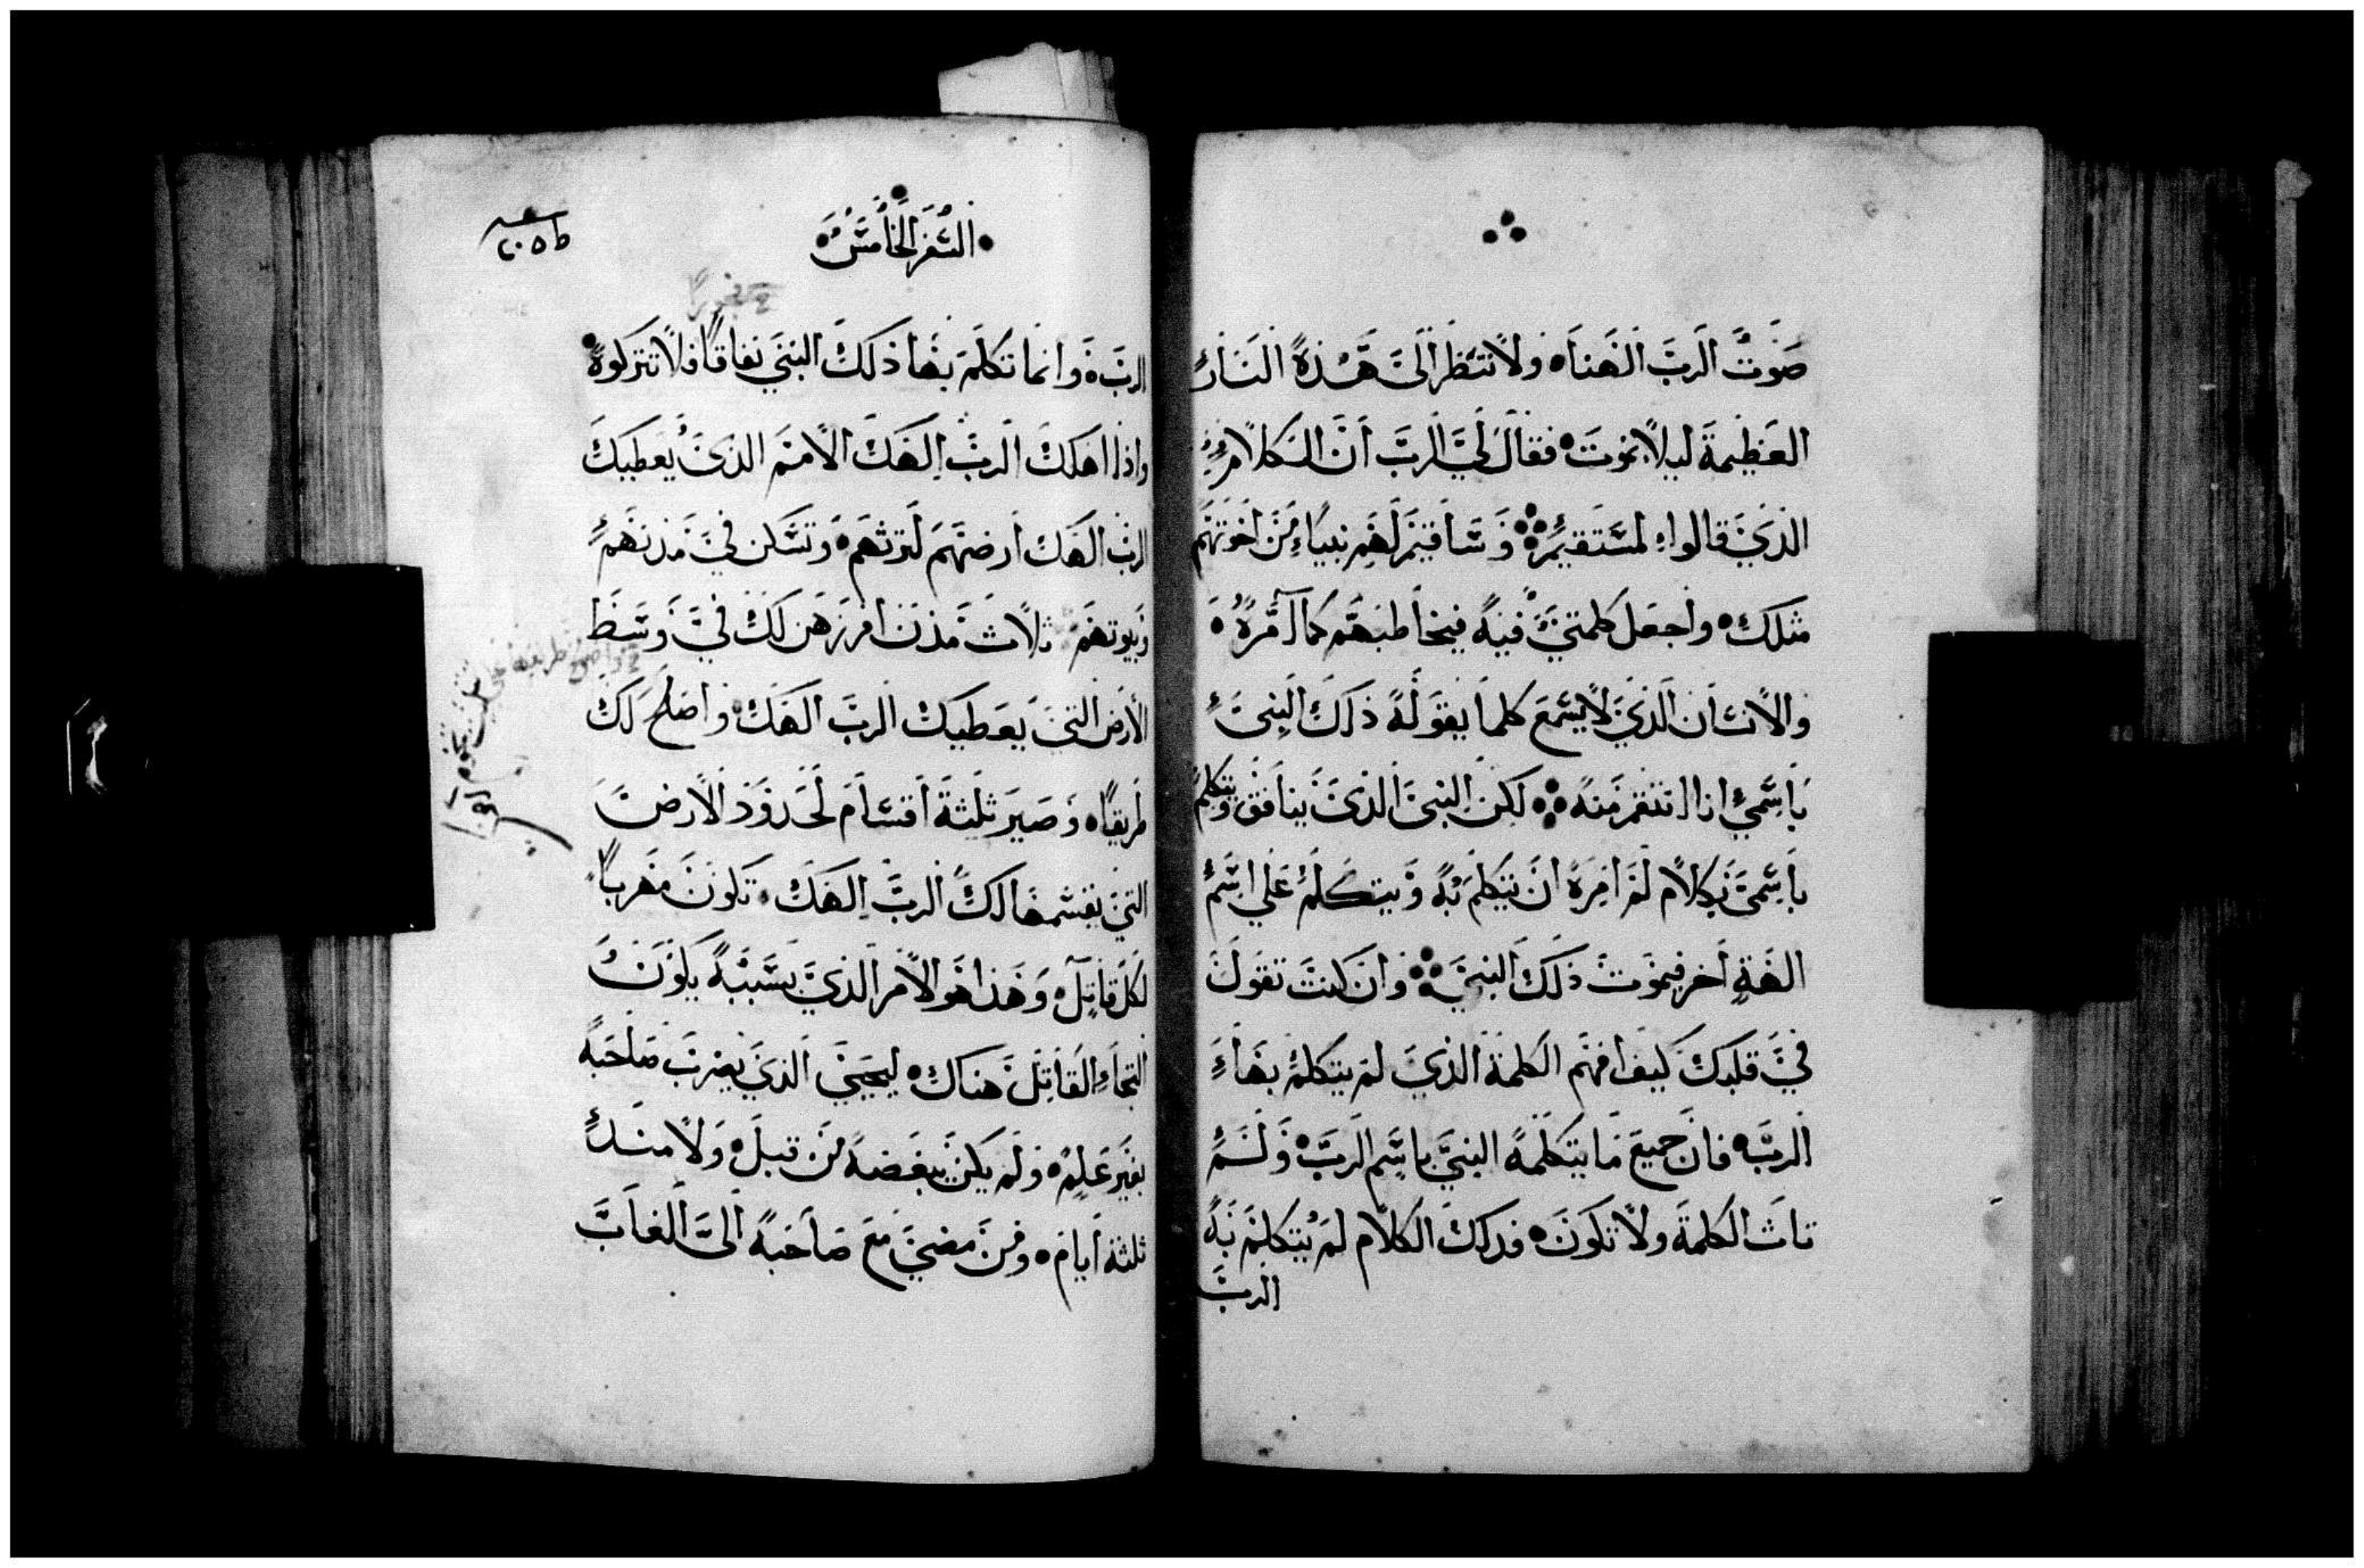 صوت الرب الهنا ولا تنظر الى هذه النار
العظيمة ليلا نموت فقال لي الرب ان الكلام
الذي قالوا مستقيم وساقيم لهم نبيا من اخوتهم
مثلك واجعل كلمتي فيه فيخاطبهم كما امره
والانسان الذي لا يسمع كلما يقوله ذلك النبي
باسمي انا انتقم منه لكن النبي الذي ينافق ويتكلم
باسمي بكلام لم امره ان يتكلم به ويتكلم على اسم
الهة اخر فيموت ذلك النبي وان كنت تقول
في قلبك كيف افهم الكلمة الذي لم يتكلم بها
الرب فان جميع ما يتكلمه النبي باسم الرب ولم
تات الكلمة ولا تكون فذلك الكلام لم يتكلم به
الرب
السفر الخامس
الرب وانما تكلم بها ذلك النبي نفاقا فلا تتركوه
واذا اهلك الرب الهك الامم الذي يعطيك
الرب الهك ارضهم لترثهم وتسكن في مدنهم
وبيوتهم ثلاث مدن افرزهن لك في وسط
الارض التي يعطيك الرب الهك واصلح لك
طريقا وصير ثلثة اقسام لحدود الارض
التي يقسمها لك الرب الهك تكون مهربا
لكل قاتل وهذا هو الامر الذي بسببه يكون
التجاء القاتل هناك ليحيى الذي يضرب صاحبه
بغير علم ولم يكن يبغضه من قبل ولا منذ
ثلثة ايام ومن مضي مع صاحبه الى الغاب